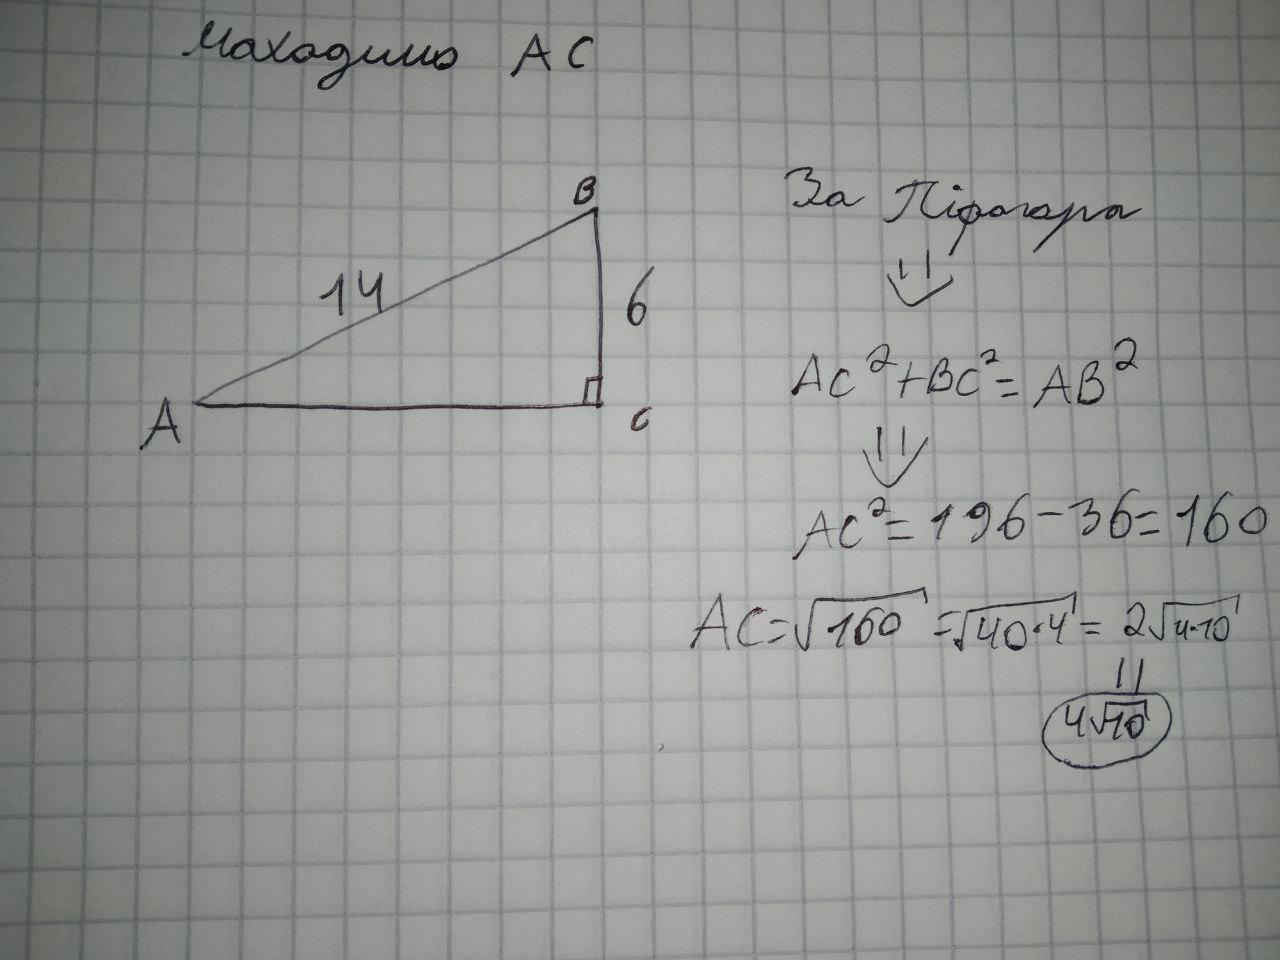 Находимо AC
B
14
6
A
C
За Піфагора
AC²+BC²=AB²
AC²=196-36=160
AC=√160=√40·4=2√4·10
=
4√10